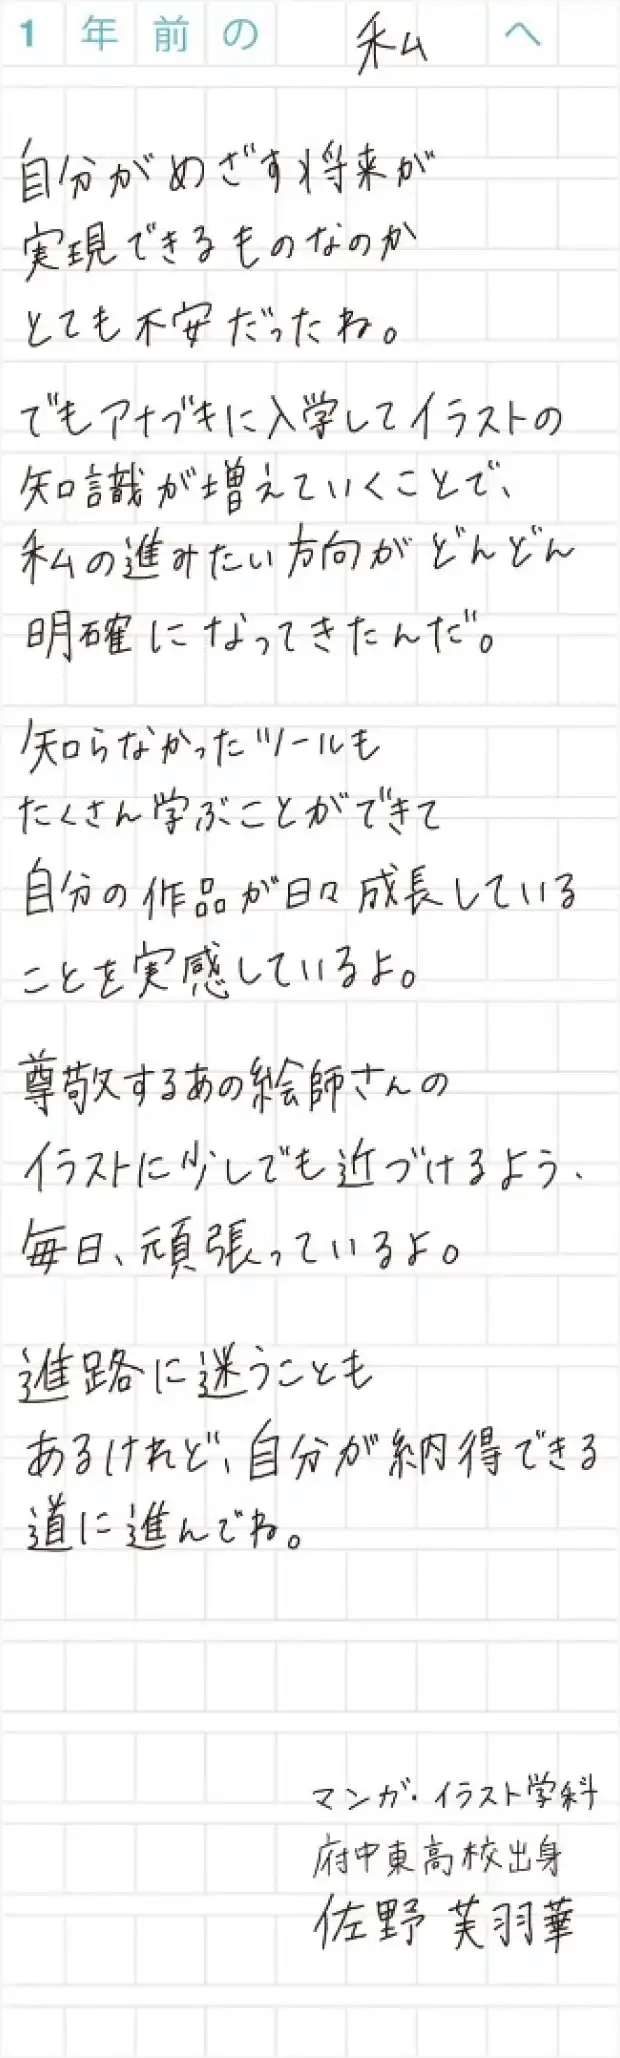 1年前の 私 へ
自分がめざす将来が
実現できるものなのか
とても不安だったね。
でもアナブキに入学してイラストの
知識が増えていくことで、
私の進みたい方向がどんどん
明確になってきたんだ。
知らなかったツールも
たくさん学ぶことができて
自分の作品が日々成長している
ことを実感しているよ。
尊敬するあの絵師さんの
イラストに少しでも近づけるよう、
毎日、頑張っているよ。
進路に迷うことも
あるけれど、自分が納得できる
道に進んでね。
マンガ・イラスト学科
府中東高校出身
佐野 芙羽華